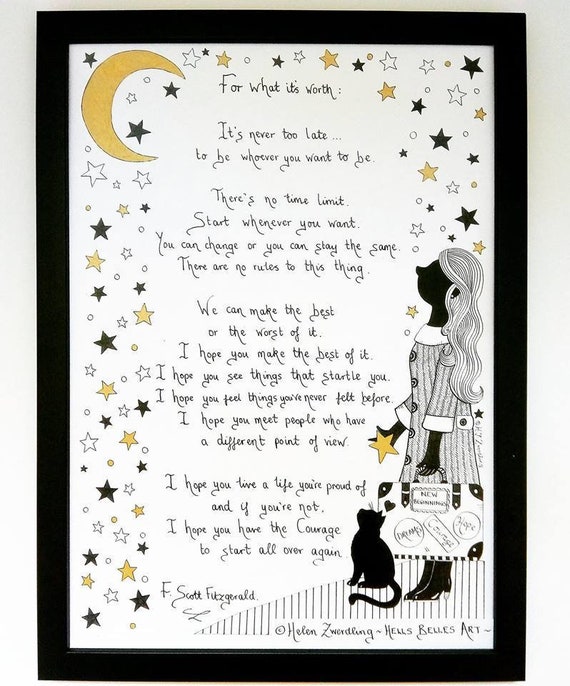 For what it's worth:
It's never too late...
to be whoever you want to be.
There's no time limit.
Start whenever you want.
You can change or you can stay the same.
There are no rules to this thing.
We can make the best
or the worst of it.
I hope you make the best of it.
I hope you see things that startle you.
I hope you feel things you've never felt before.
I hope you meet people who have
a different point of view.
I hope you live a life you're proud of
and if you're not,
I hope you have the Courage
to start all over again.
F. Scott Fitzgerald.
NEW
BEGINNINGS
DREAMS
Courage
Hope
© Helen Zwerdling ~ HELLS BELLES ART ~